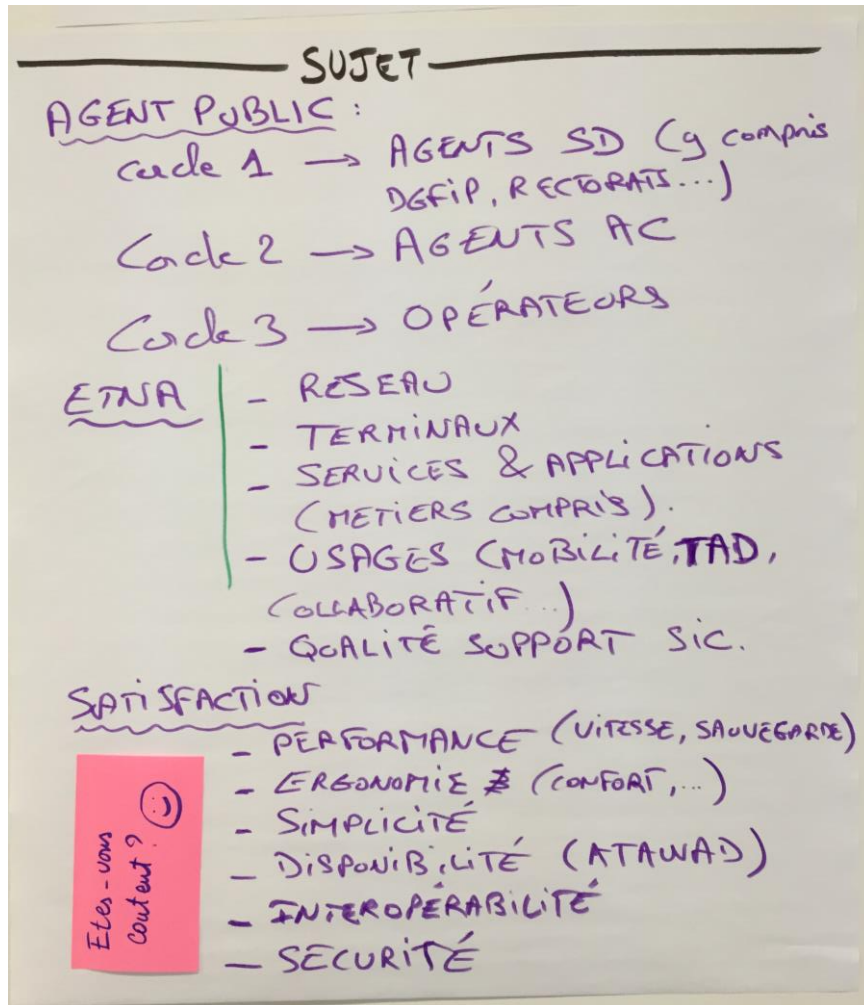 SUJET
AGENT PUBLIC :
Cercle 1 → AGENTS SD (y compris
DGFiP, RECTORATS...)
Cercle 2 → AGENTS AC
Cercle 3 → OPÉRATEURS
ETNA
- RESEAU
- TERMINAUX
- SERVICES & APPLICATIONS
(METIERS COMPRIS).
- USAGES (MOBILITÉ, TAD,
COLLABORATIF...)
- QUALITÉ SUPPORT SIC.
SATISFACTION
- PERFORMANCE (VITESSE, SAUVEGARDE)
- ERGONOMIE (CONFORT, ...)
- SIMPLICITÉ
- DISPONIBILITÉ (ATAWAD)
- INTEROPÉRABILITÉ
- SECURITÉ
Etes-vous
content ?